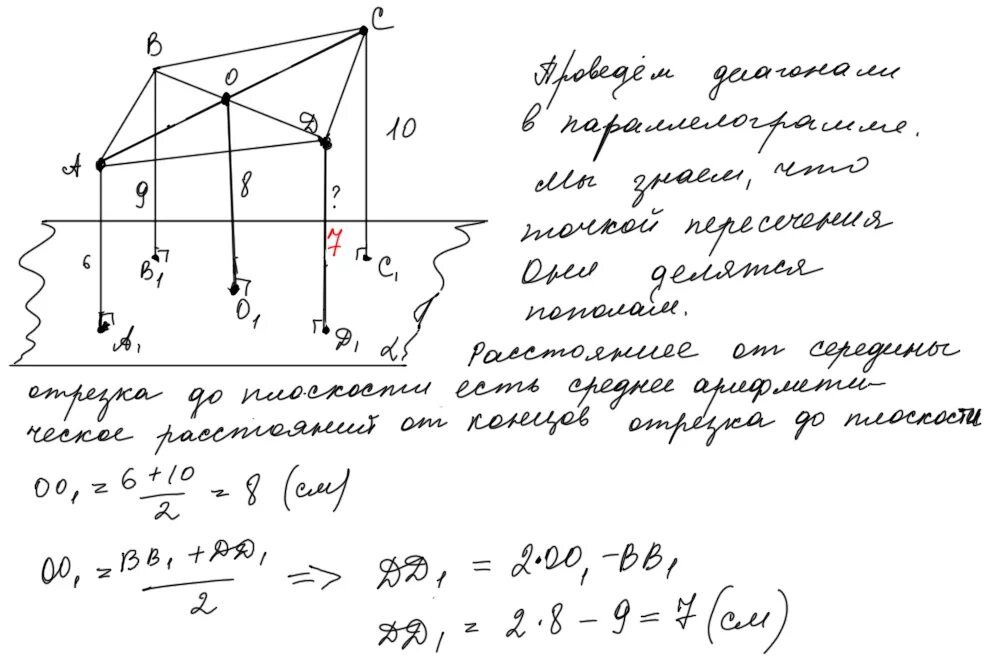 C
B
O
Д
A
10
9
8
?
7
6
B₁
C₁
O₁
A₁
Д₁
α
Проведём диагонали
в параллелограмме.
Мы знаем, что
точкой пересечения
они делятся
пополам.
Расстояние от середины
отрезка до плоскости есть среднее арифмети-
ческое расстояний от концов отрезка до плоскости
OO₁ = (6 + 10)/2 = 8 (см)
OO₁ = (BB₁ + ДД₁)/2 => ДД₁ = 2·OO₁ - BB₁
ДД₁ = 2·8 - 9 = 7 (см)